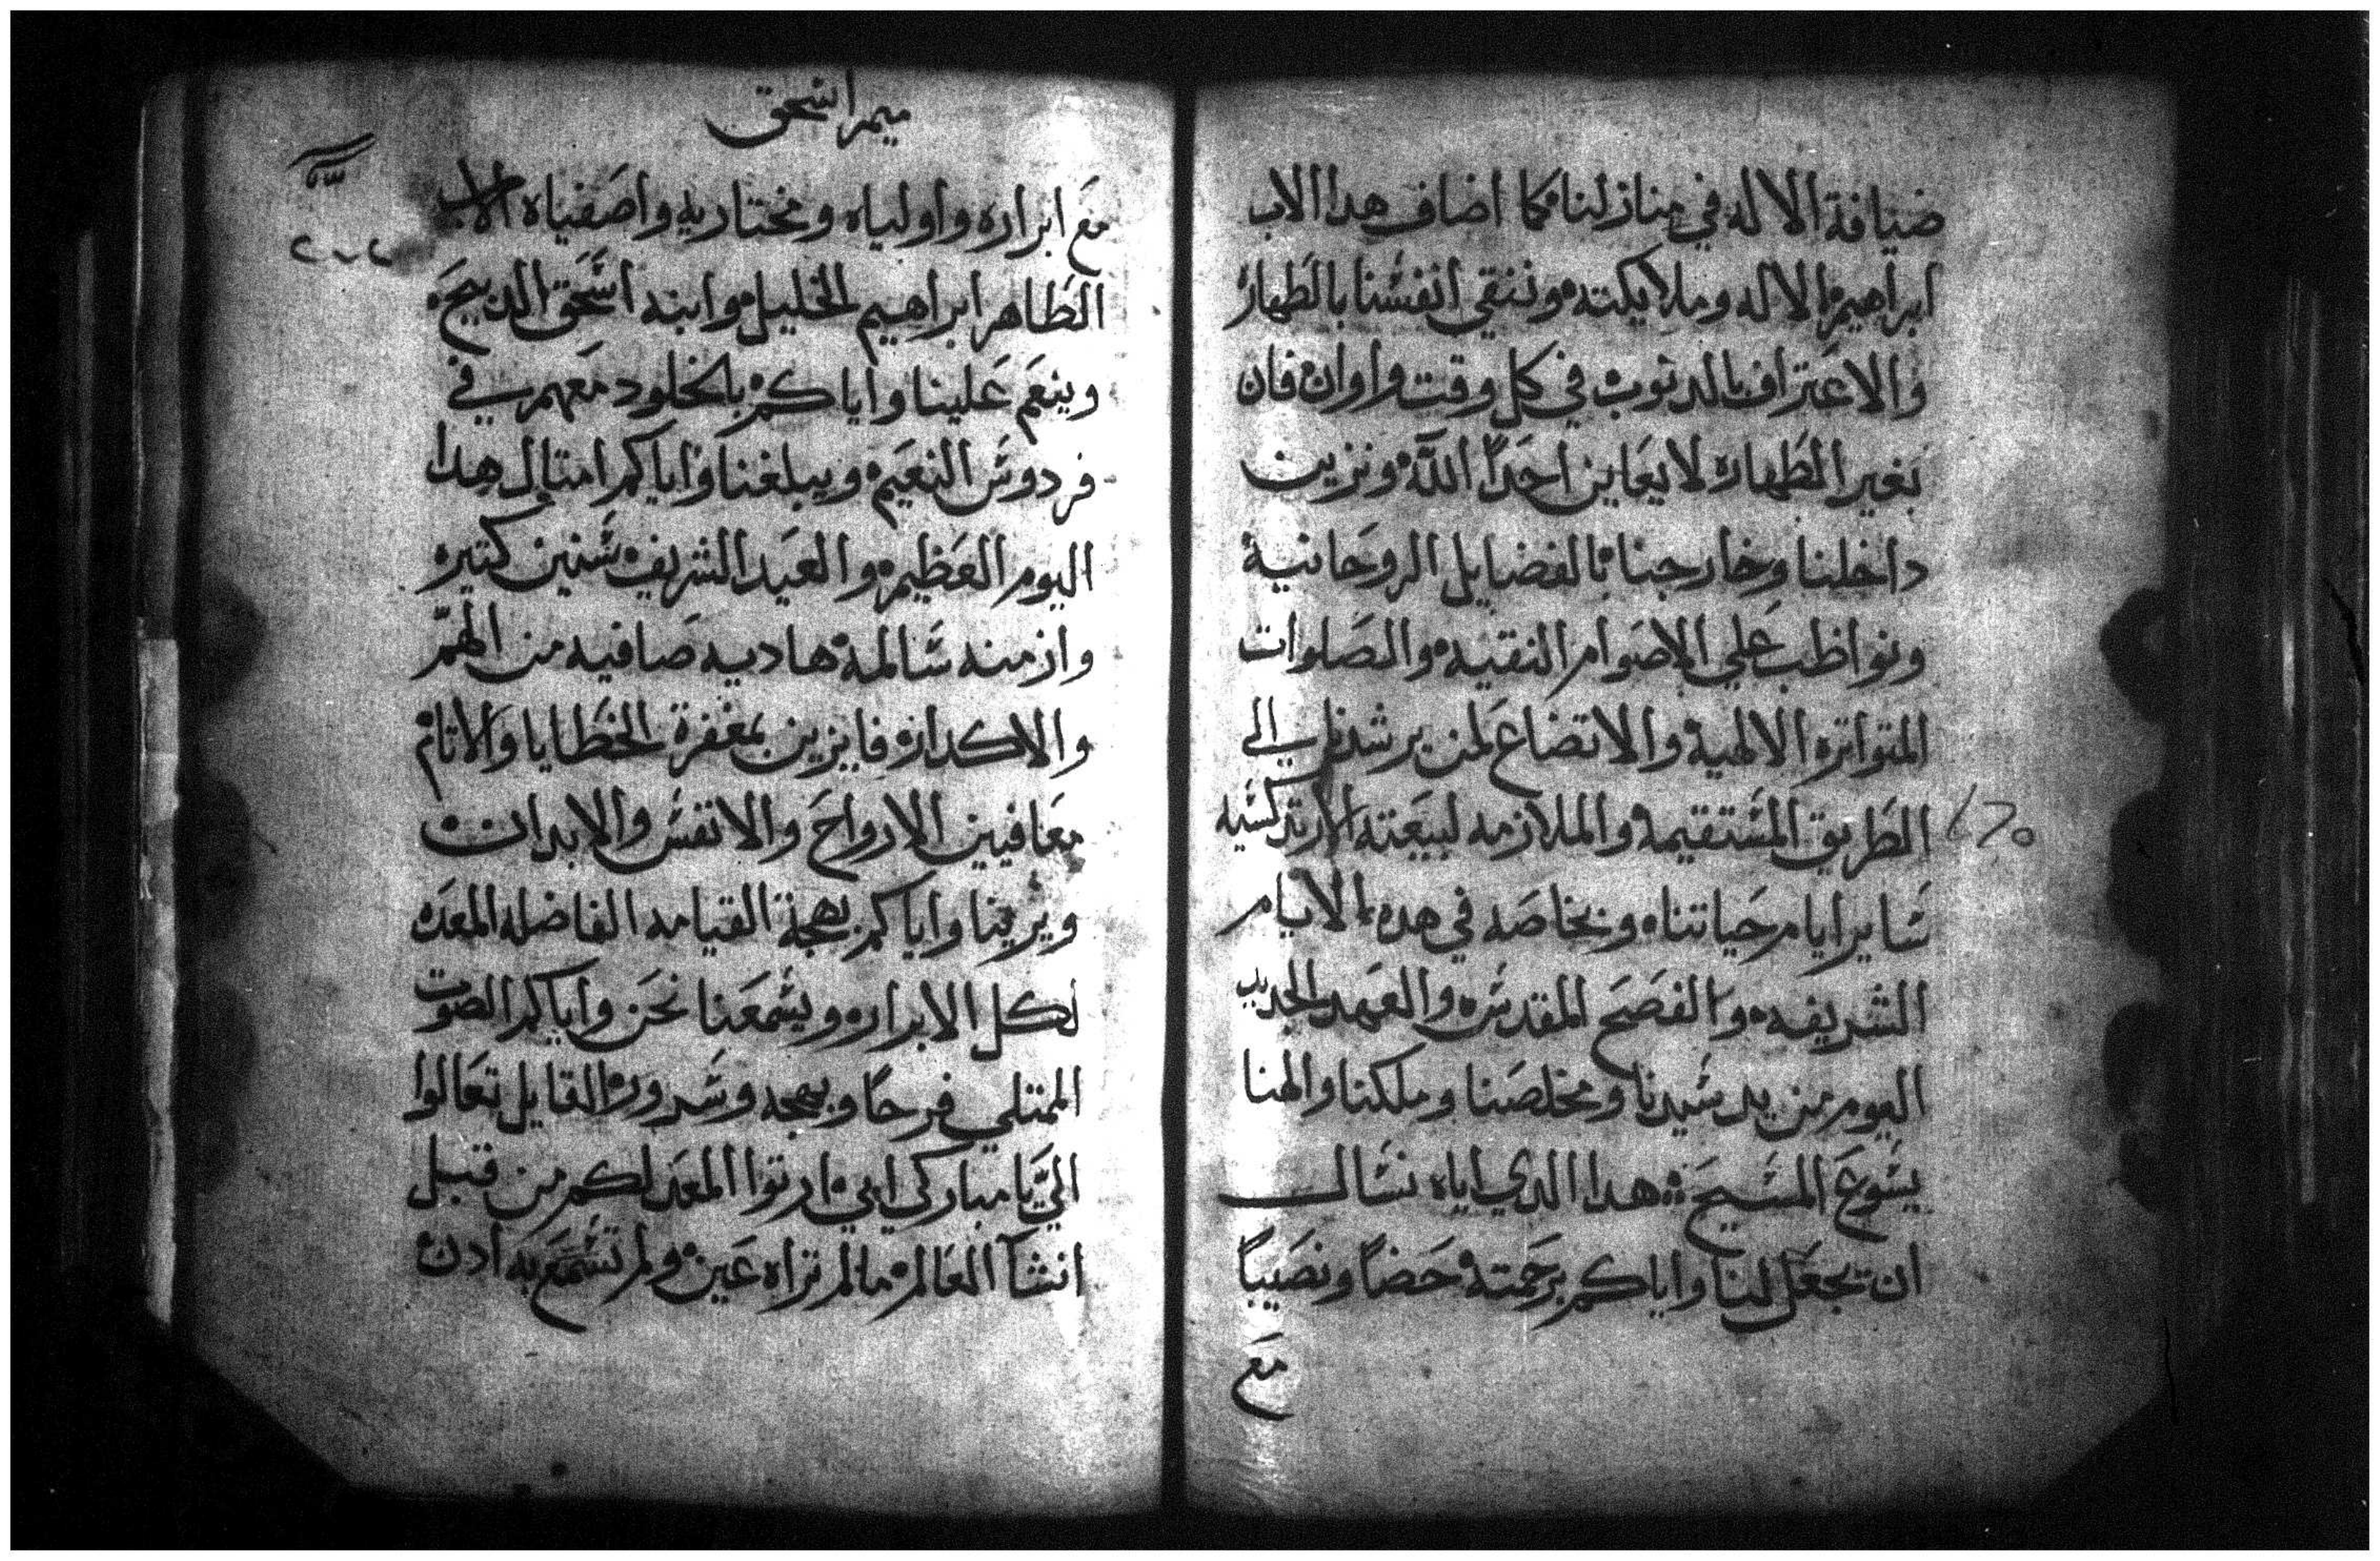 ضيافة الاله في منازلنا كما اضاف هدا الاب
ابراهيم الاله وملايكته وننقي انفسنا بالطهاره
والاعتراف بالدنوب في كل وقت واوان فان
بغير الطهاره لا يعاين احداً الله ونزين
داخلنا وخارجنا بالفضايل الروحانية
ونواظب علي الاصوام النقيه والصلوات
المتواتره الالهية والاتضاع لمن يرشدنا الي
الطريق المستقيمة والملازمه لبيعته الارتدكسيه
ساير ايام حياتنا وبخاصه في هده الايام
الشريفه والفصح المقدس والعهد الجديد
اليوم من يد سيدنا ومخلصنا وملكنا والهنا
يسوع المسيح هدا الدي اياه نسال
ان يجعل لنا واياكم برحمته حضاً ونصيباً
مع
ميمر اسحق
مع ابراره واولياه ومختاريه واصفياه الاب
الطاهر ابراهيم الخليل وابنه اسحق الدبيحه
وينعم علينا واياكم بالخلود معهم في
فردوس النعيم ويبلغنا واياكم امتال هدا
اليوم العظيم والعيد الشريف سنين كتيره
وازمنه سالمة هاديه صافيه من الهمّ
والاكدار فايزين بمغفرة الخطايا والاتام
معافيين الارواح والانفس والابدان
ويرينا واياكم بهجة القيامه الفاضله المعده
لكل الابرار ويسمعنا نحن واياكم الصوت
الممتلي فرحاً وبهجه وسرور القايل تعالوا
اليّ يا مباركي ابي ارتوا المعد لكم من قبل
انشآ العالم ما لم تراه عين ولم تسمع به ادن